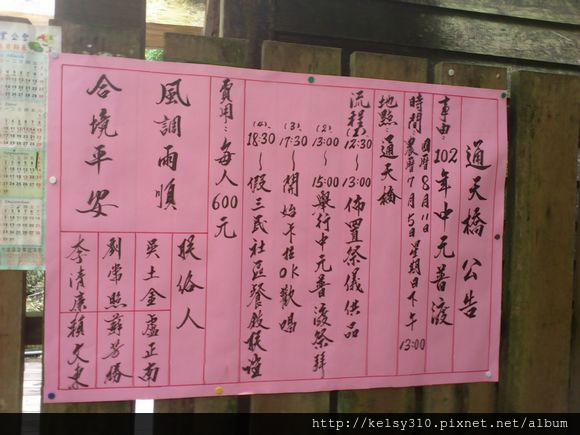 通天橋 公告
事由:102年中元普渡
時間:國曆8月11日
農曆7月5日星期日下午13:00
地點:通天橋
流程(1)12:30～13:00佈置祭儀供品
(2)13:00～15:00舉行中元普渡祭拜
(3)17:30～開始卡拉OK歡唱
(4)18:30～假三民社區餐敘聯誼
費用:每人600元
風調雨順
合境平安
聯絡人
吳土金
盧正南
劉常照
薛芳勝
李清廉
http://kelsy310.pixnet.net/album